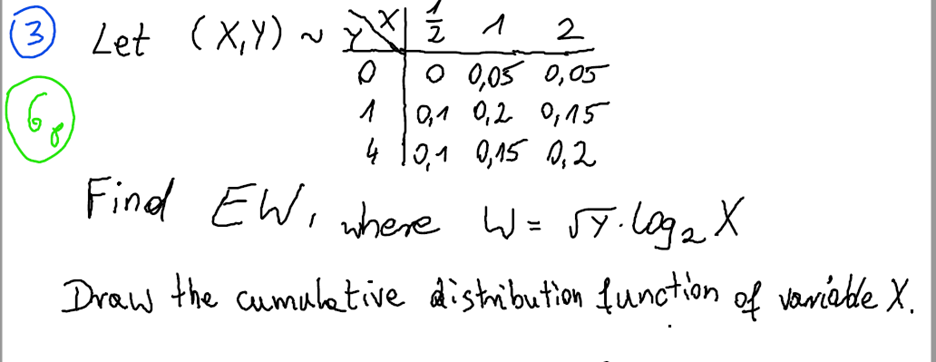 ③ Let (X,Y) ~ Y\X | 1/2 1 2
0 | 0 0,05 0,05
6p 1 | 0,1 0,2 0,15
4 | 0,1 0,15 0,2
Find EW, where W = √Y · log₂ X
Draw the cumulative distribution function of variable X.